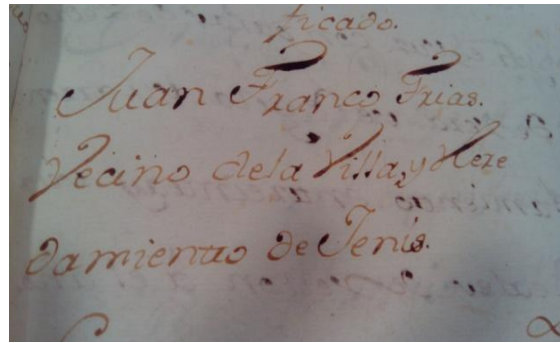 ficado.
Juan Franco Frias.
Vecino dela Villa, y Here
damiento de Jenis.